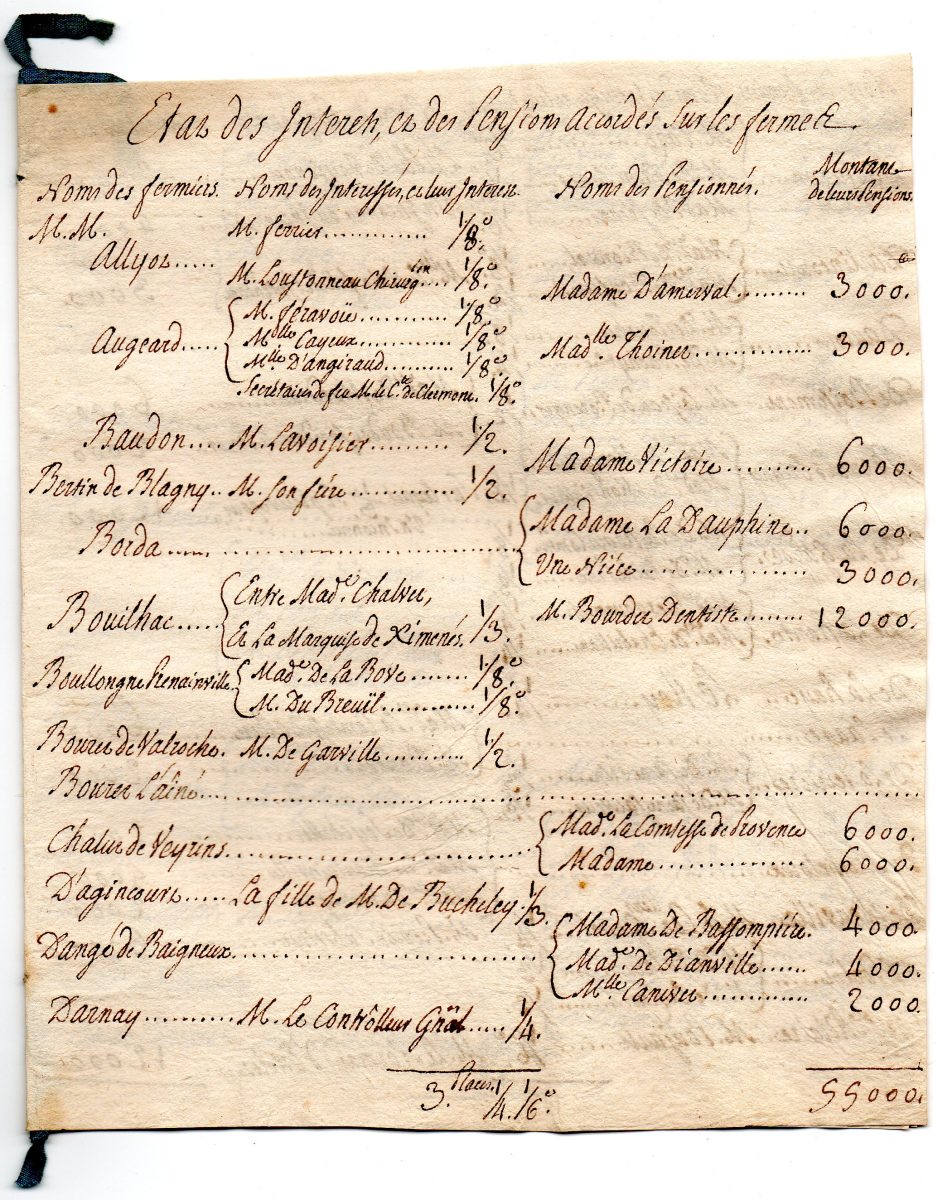 Etat des Interets, et des Pensions accordés sur les fermes &.
Noms des fermiers. Noms des Interessés, et leur Interet. Noms des Pensionnés. Montant de leurs Pensions.
M. M.
Allyot..... M. ferrier............ 1/8.e
M. Loustonneau Chirurgien.... 1/8.e Madame D'amerval......... 3000.
Augeard..... M. féravoüe............ 1/8.e
Mdlle Cayeux............ 1/8.e Madlle. Thoinet............... 3000.
Mlle D'angiraud......... 1/8.e
Secretaires de feu M. le C.te de Clermont. 1/8.e
Baudon..... M. Lavoisier......... 1/2. Madame Victoire.......... 6000.
Bertin de Blagny.. M. son frére............ 1/2.
Borda................ Madame La Dauphine.. 6000.
Une Niéce.................. 3000.
Bouilhac..... Entre Made. Chalvet,
Et La Marquise de Ximenés. 1/3. M. Bourdet Dentiste....... 12000.
Boullongne Prenainville. Made. De La Bove....... 1/8.e
M. Du Breuïl........... 1/8.e
Bouret de Valroche. M. De Garville.......... 1/2.
Bouret L'aîné................
Chalut de Veyrins................ Made. La Comtesse de Provence 6000.
Madame................ 6000.
D'agincourt..... La fille de M. De Bucheley. 1/3.
Dangé de Baigneux................ Madame De Bassompiére. 4000.
Made. De Dianville...... 4000.
Mlle. Canivet............. 2000.
Darnay.......... M. Le Contrôlleur Gñal..... 1/4.
3. Places. 1/4. 1/6.e 55000.